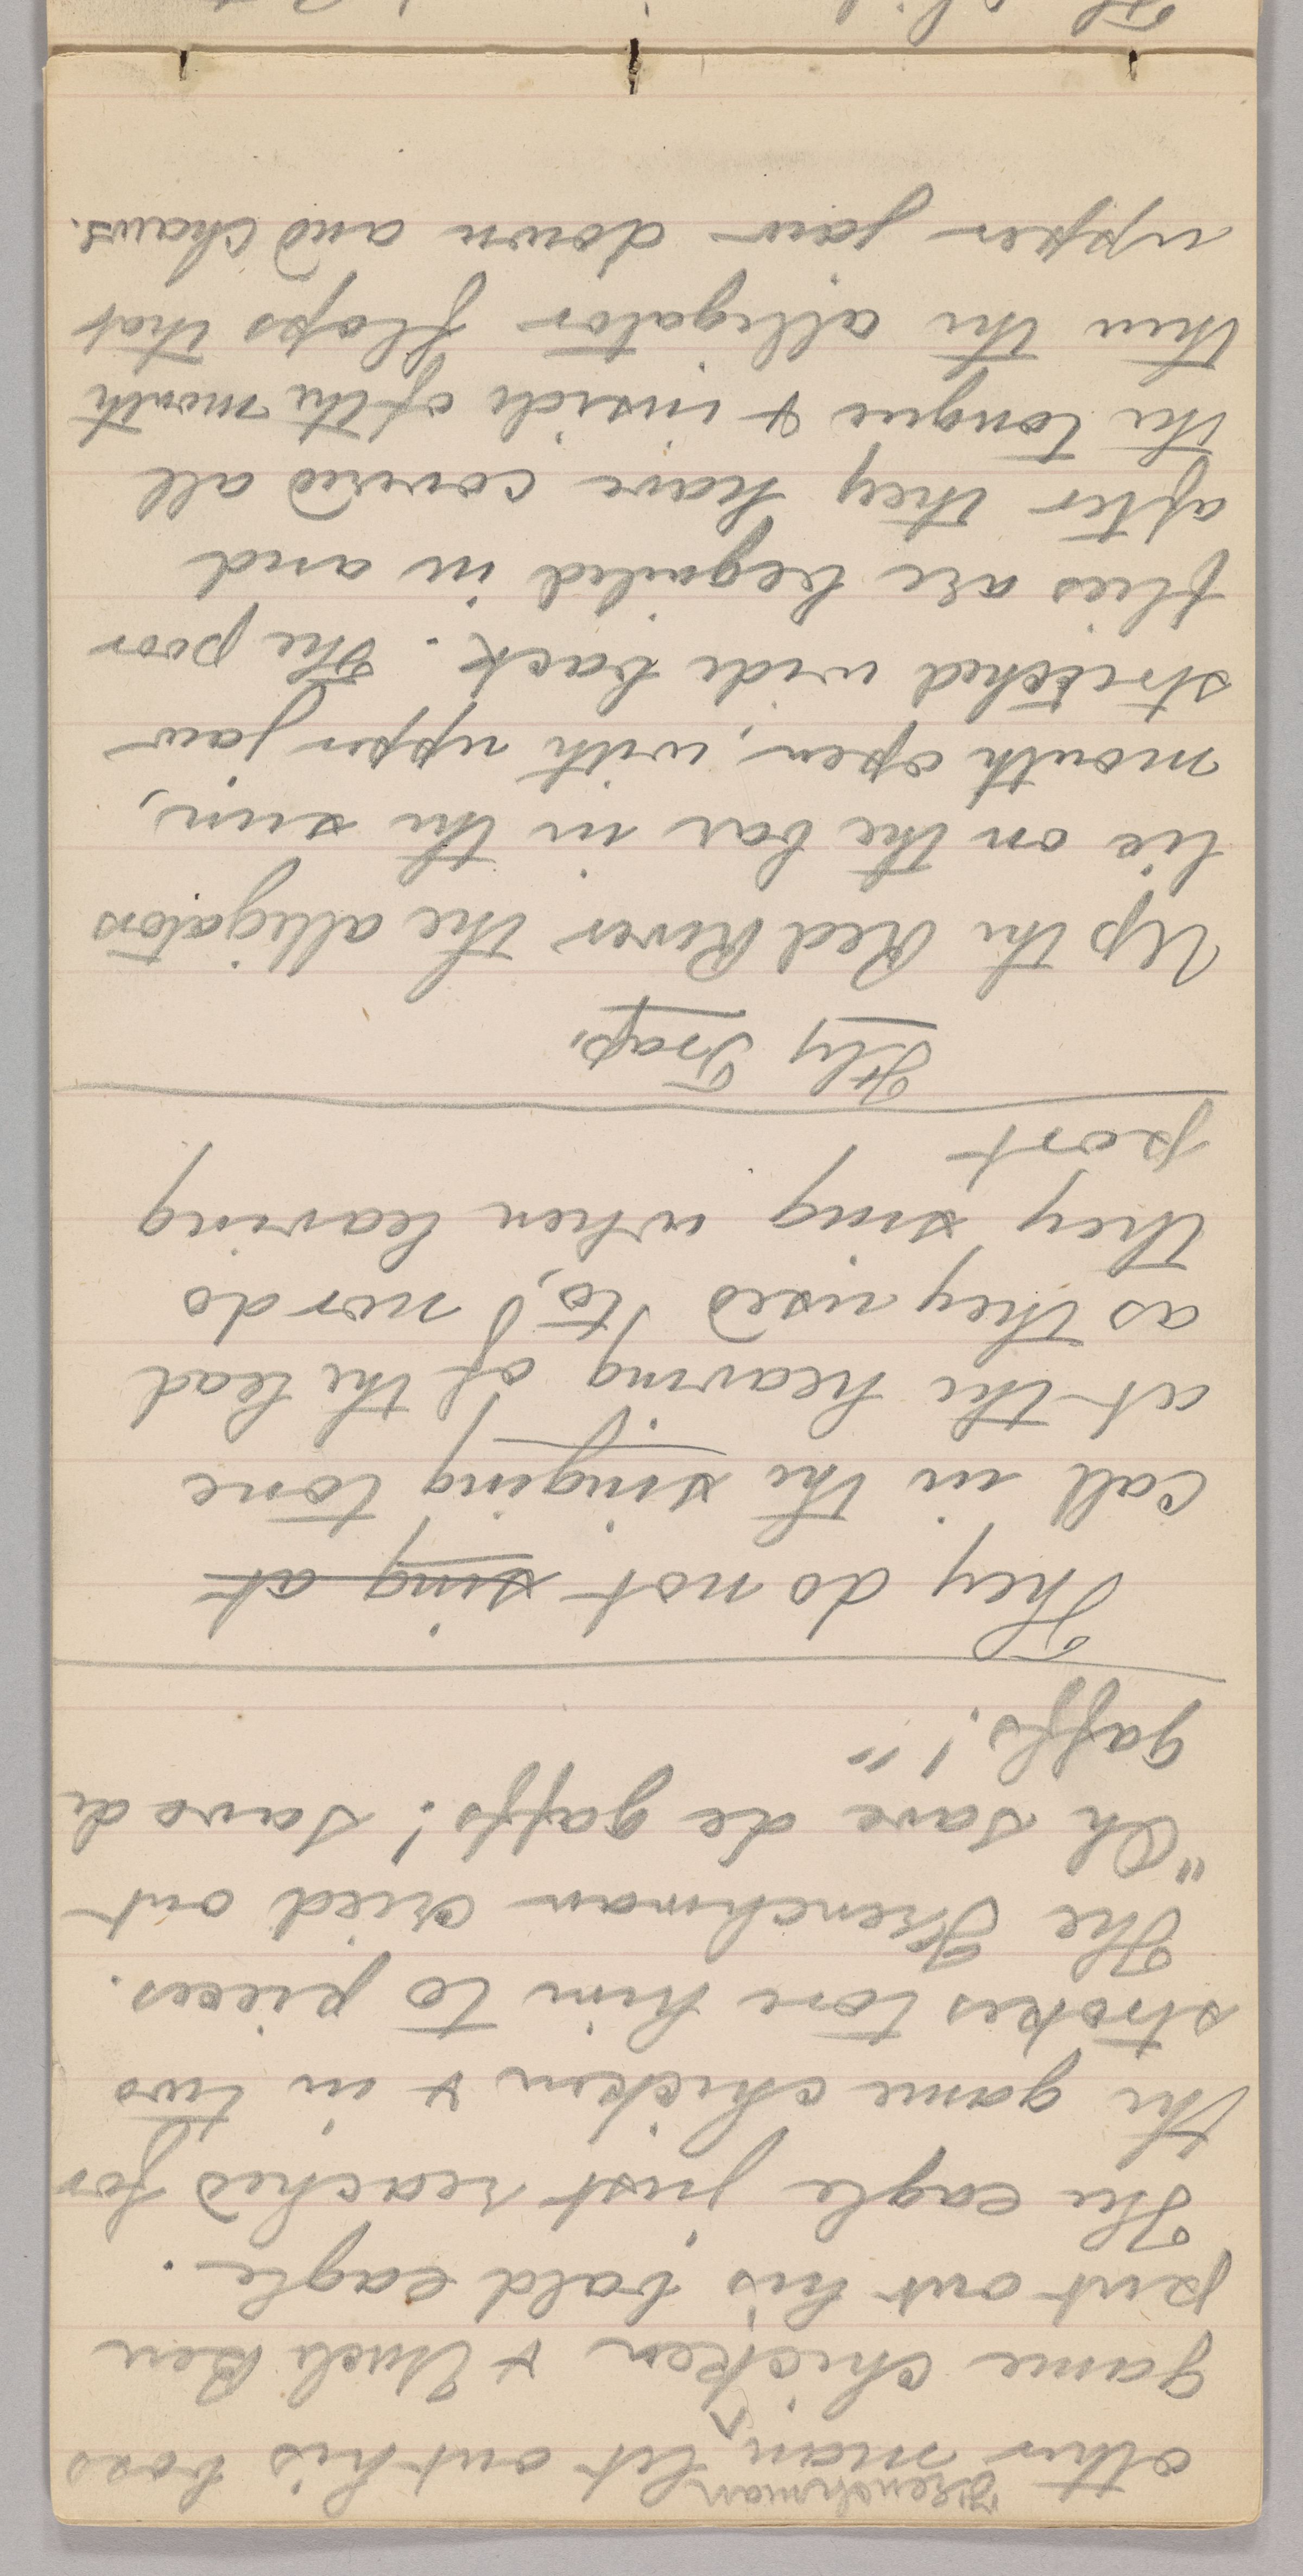 Frenchman
other man, let out his boss
game chicken & Uncle Ben
put out his bald eagle.
The eagle just reached for
the game chicken & in two
strokes tore him to pieces.
The Frenchman cried out
"Oh save de gaffs! save de
gaffs!"
They do not sing at
call in the singing tone
at the heaving of the lead
as they used to, nor do
they sing when leaving
port
Fly Trap.
Up the Red River the alligators
lie on the bar in the sun,
mouth open, with upper jaw
stretched wide back. The poor
flies are beguiled in and
after they have covered all
the tongue & inside of the mouth
then the alligator flops that
upper jaw down and chaws.